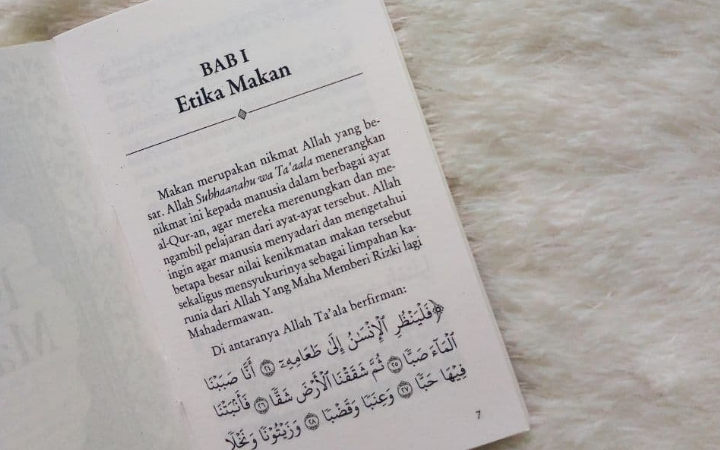 BAB I
Etika Makan
Makan merupakan nikmat Allah yang be-
sar. Allah Subhaanahu wa Ta'aala menerangkan
nikmat ini kepada manusia dalam berbagai ayat
al-Qur-an, agar mereka merenungkan dan me-
ngambil pelajaran dari ayat-ayat tersebut. Allah
ingin agar manusia menyadari dan mengetahui
betapa besar nilai kenikmatan makan tersebut
sekaligus mensyukurinya sebagai limpahan ka-
runia dari Allah Yang Maha Memberi Rizki lagi
Mahadermawan.
Di antaranya Allah Ta'ala berfirman:
﴿فَلْيَنْظُرِ ٱلْإِنْسَـٰنُ إِلَىٰ طَعَامِهِۦٓ ۝٢٤ أَنَّا صَبَبْنَا
ٱلْمَآءَ صَبًّا ۝٢٥ ثُمَّ شَقَقْنَا ٱلْأَرْضَ شَقًّا ۝٢٦ فَأَنۢبَتْنَا
فِيهَا حَبًّا ۝٢٧ وَعِنَبًا وَقَضْبًا ۝٢٨ وَزَيْتُونًا وَنَخْلًا
7